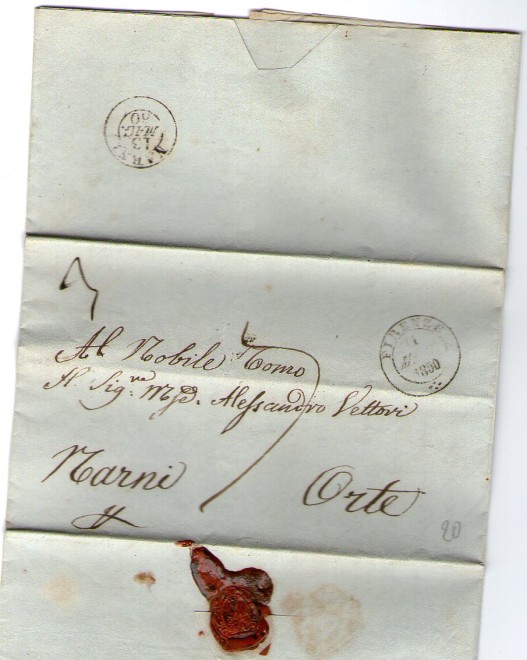 NARNI
13
MAG.
50
FIRENZE
1850
Al Nobile Uomo
Il Sig.re Alessandro Vettori
Narni Orte
20